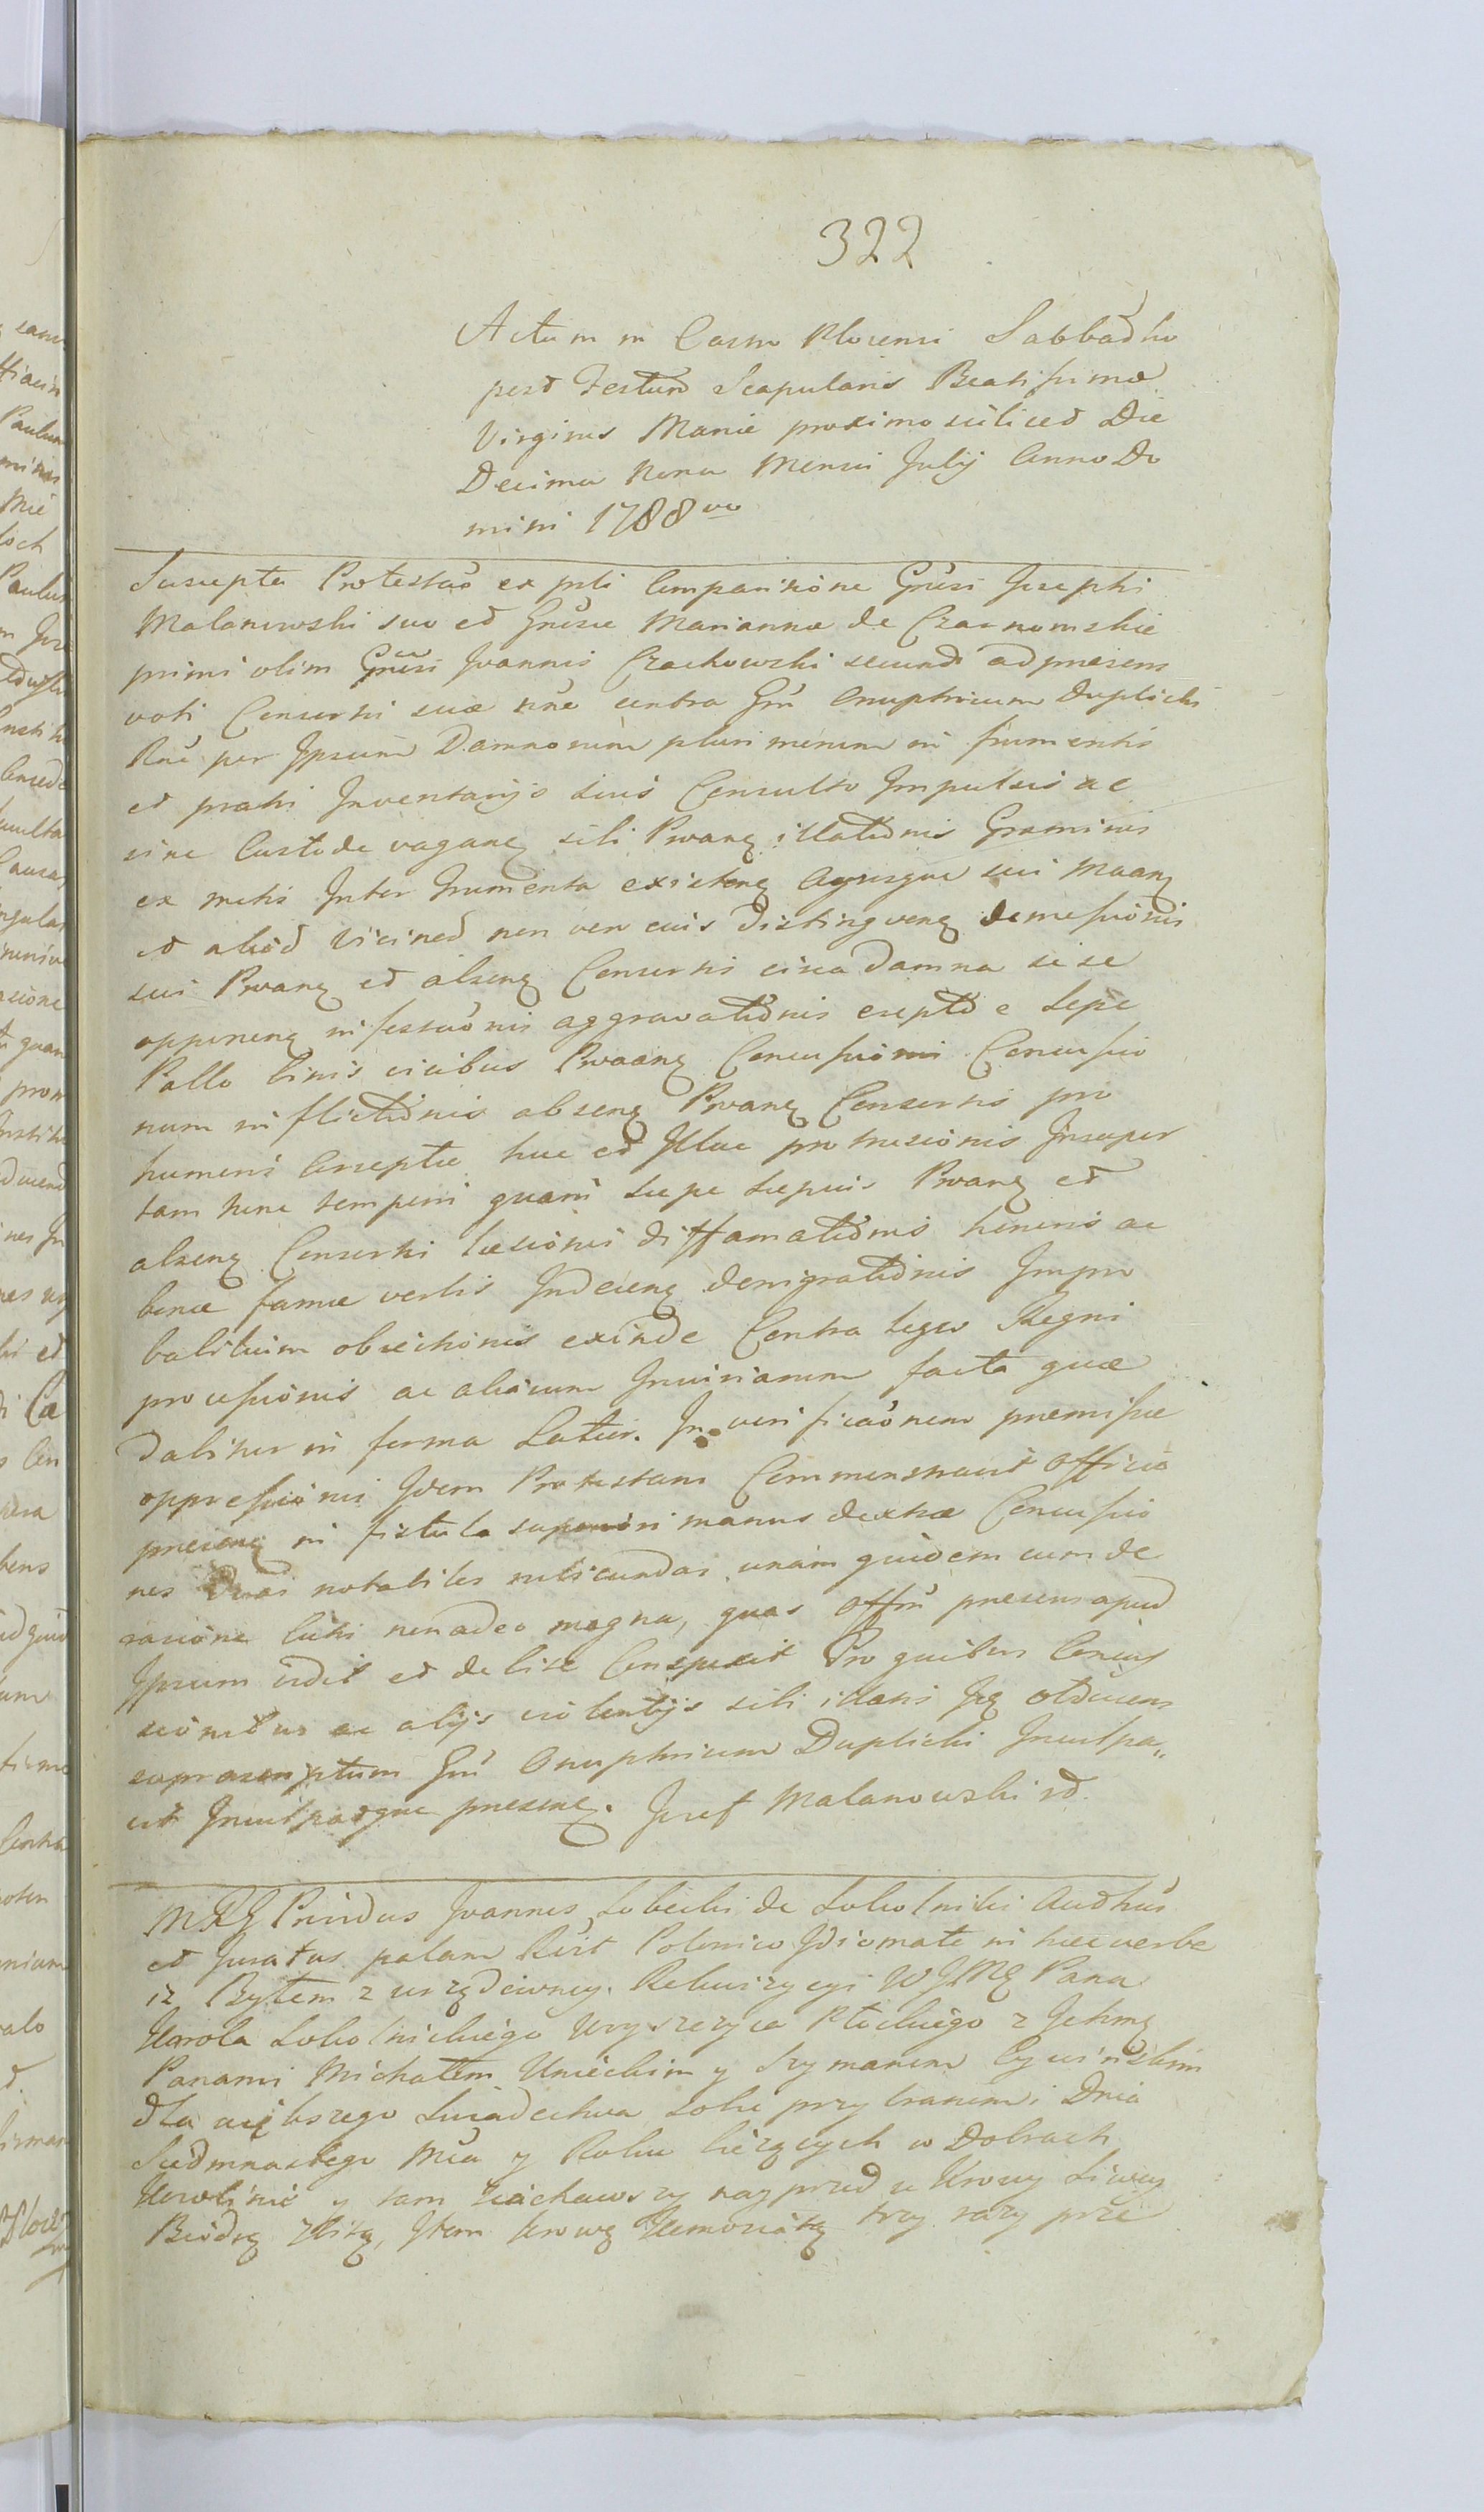 322
Actum in Castro Plocensi Sabbatho
post Festum Scapularis Beatissimæ
Virginis Mariæ proximo scilicet Die
Decima Nona Mensis July Anno Do
mini 1788vo
Suscepta Protestao ex psti Comparitione Gnesi Josephi
Malanowski suo et Gnesæ Mariannæ de Czarnomskie
primi olim Gnesi Joannis Czachowski secundi ad præsens
voti Consortis suæ nne contra Gm Onuphrium Duplicki
Rne per Ipsum Damnorum plurimorum in frumentis
et pratis Inventarijs suis Consulto Impulsis ac
sine Custode vagan sibi Proan illationis Graminis
ex metis Inter frumenta existen Agrisque sui Maan
et aliod vicined non ven suis distinguen demessionis
sui Proan et absen Consortis circa damna se se
opponen infestaonis aggravationis erepto e Sepe
Pallo binis vicibus Proaan Concussionis Concussio
num inflictionis absen Proan Consortis pro
humeris Correptæ huc et Illuc protrusionis Insuper
tam hinc temporis quam sæpe sæpius Proan et
absen Consortis læsionis diffamationis honoris ac
bonæ famæ verbis Indecen denigrationis Impro
balitium obiectionis exinde Contra leges Regni
processionis ac aliarum Iniuriarum facta quæ
dabitur in forma Latior. In verificaonem præmissæ
oppressionis Idem Protestans Commonstravit Officio
præsen in fistula superiori manus dextræ Concussio
nes duas notabiles rubicundas unam quidem cum de
rasione Cutis non adeo magna, quas Offm præsens apud
Ipsum vidit et debite Conspexit Pro quibus Concus
sionibus ac alijs violentijs sibi illatis
suprascriptum Gm Onuphrium Duplicki Inculpa„
vit Inculpatque præsen. Jozef Malanowski
Pnidus Joannes Sobecki de Sokolniki Authus
et Juratus palam Rcit Polonico Idiomate in hæc verba
iż Bytem z urzędowney Rekwizycyi WJMC Pana
Karola Sokolnickiego Wryszczyca Płockiego z Ichm
Panami Michałem Unieckim y Szymanem Cywińskim
dla większego Swiadectwa sobie przybranemi Dnia
Siedmnastego Mca y Roku bieżących w Dobrach
y tam ziachawszy nayprzod u Krowy Siwey
Biodrę zbitą, Item krowę trzy razy prze